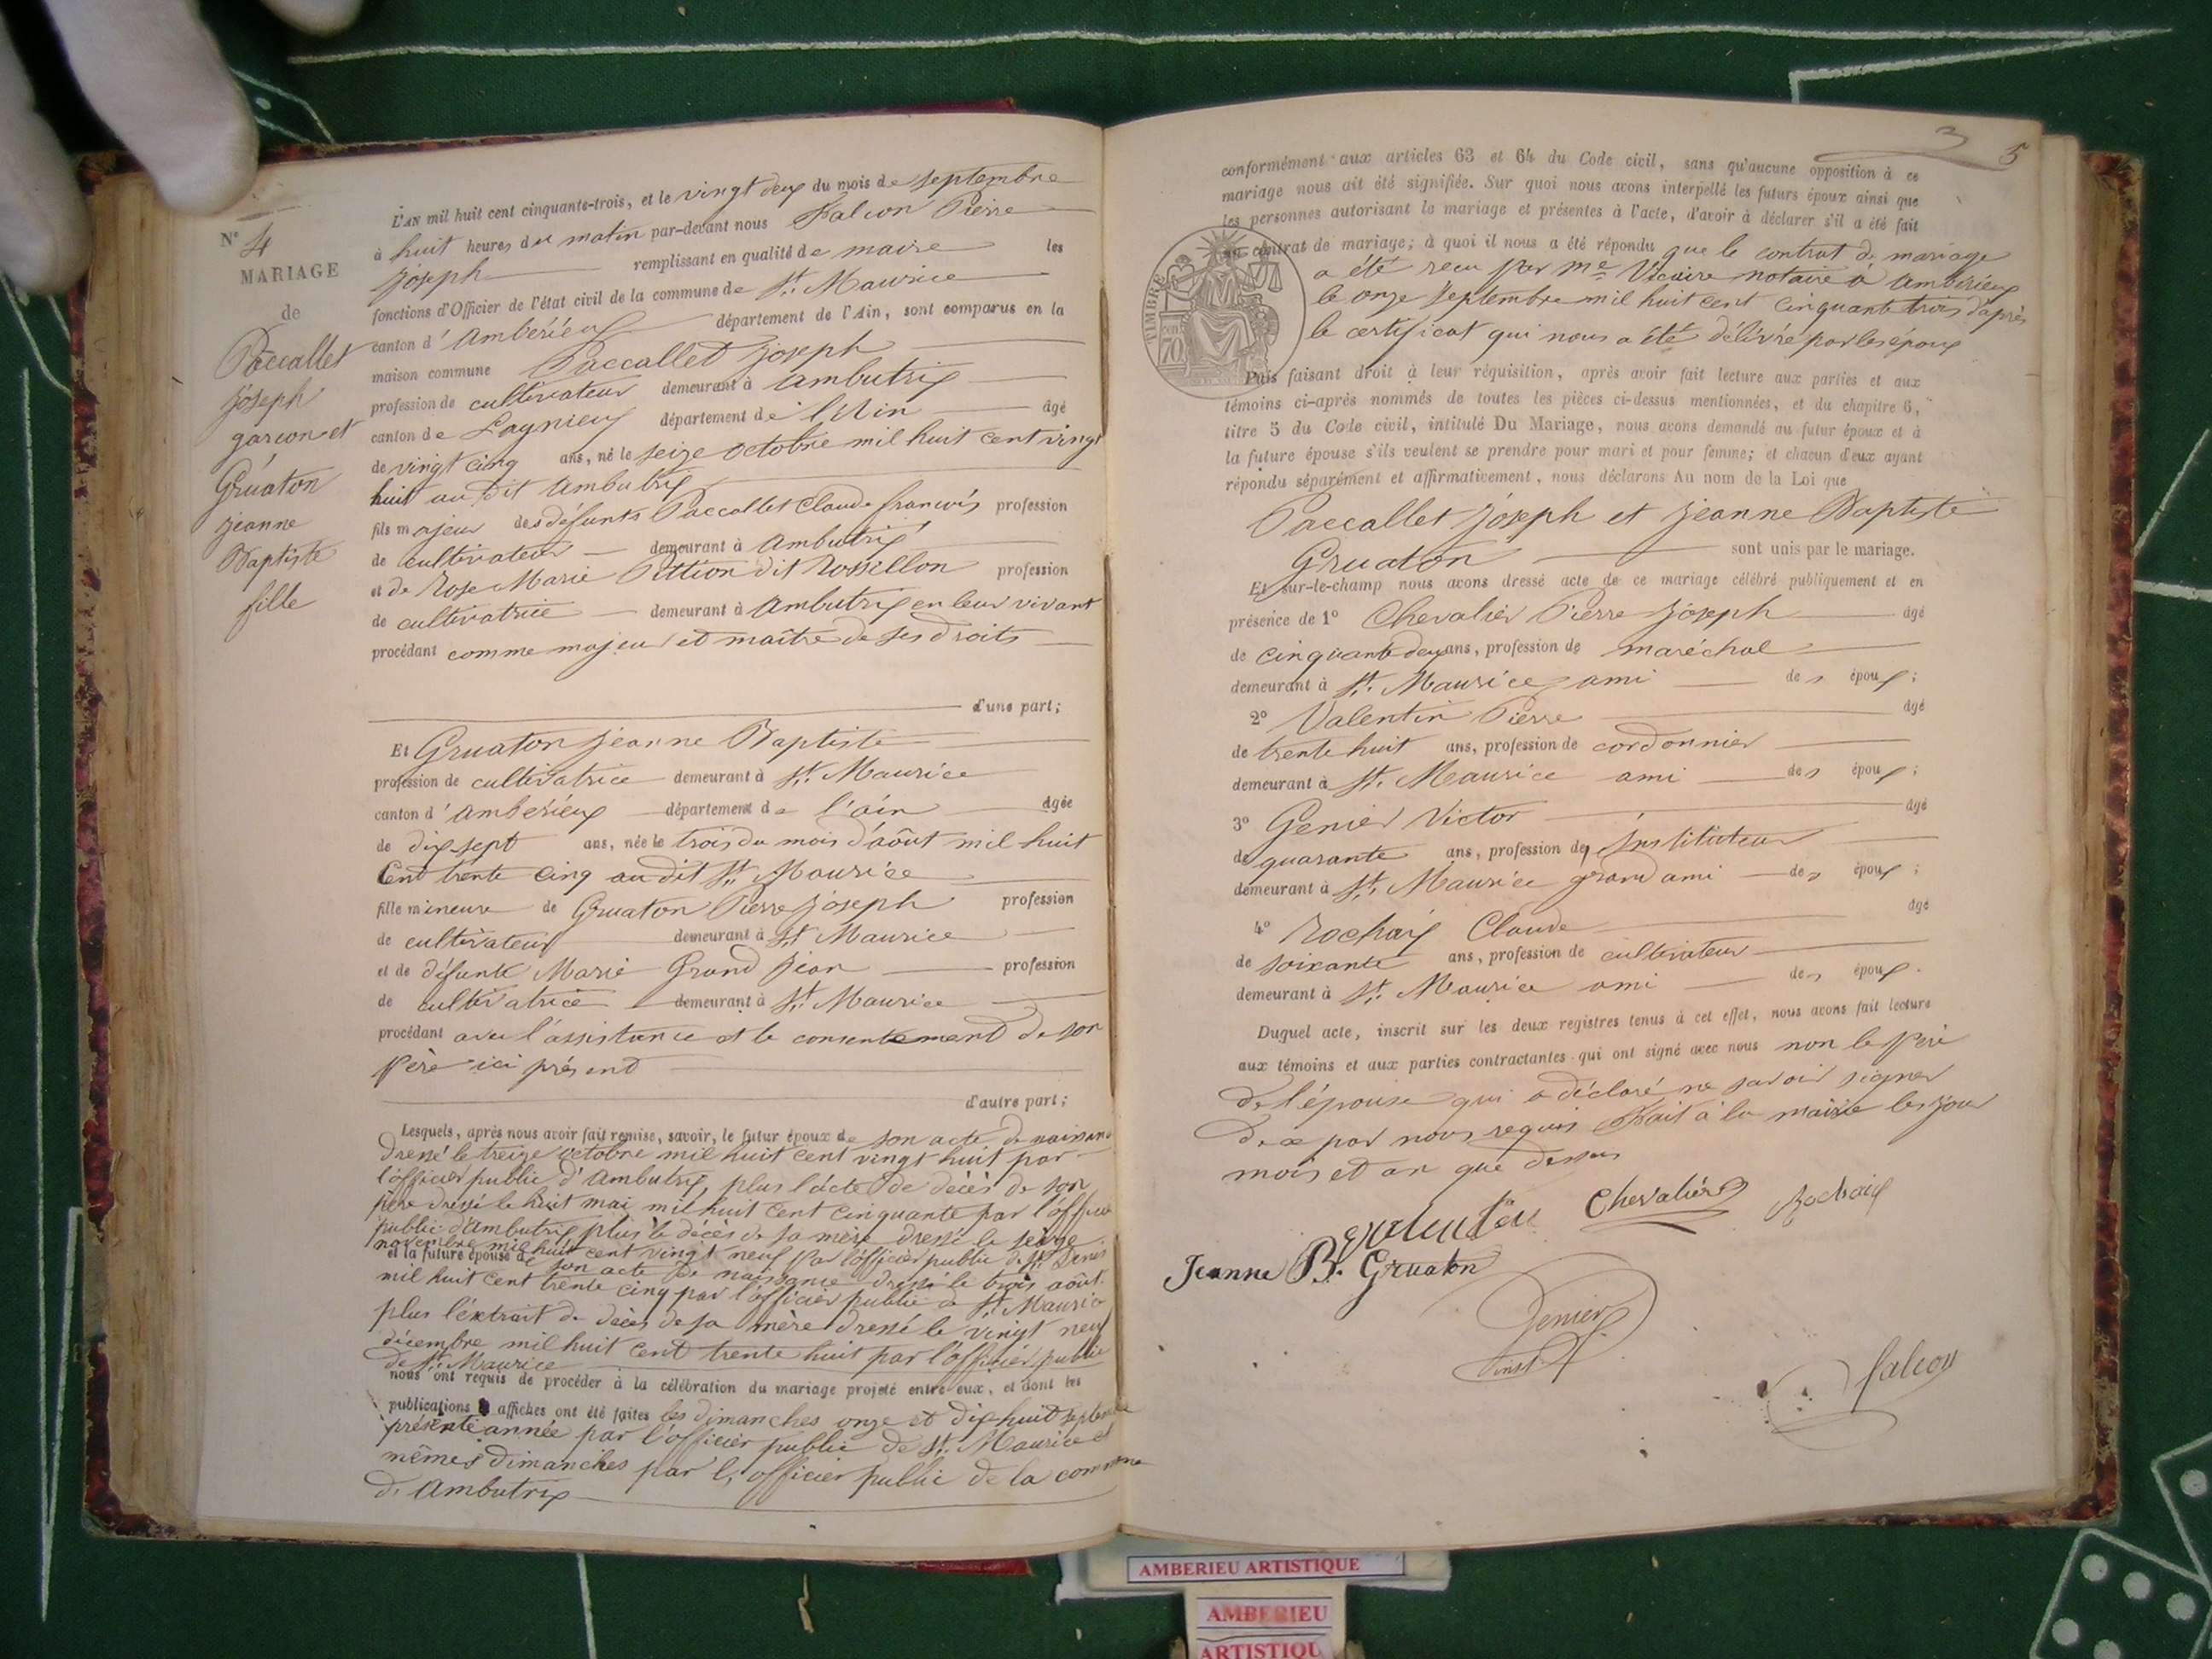 N° 4
MARIAGE
de
Paccallet
Joseph
garçon et
Gruaton
Jeanne
Baptiste
fille
L'AN mil huit cent cinquante-trois, et le vingt deux du mois de septembre
à huit heures du matin par-devant nous Falcon Pierre
Joseph remplissant en qualité de maire les
fonctions d'Officier de l'état civil de la commune de St. Maurice
canton d'Ambérieux département de l'Ain, sont comparus en la
maison commune Paccallet Joseph
profession de cultivateur demeurant à Ambutrix
canton de Lagnieux département de l'Ain âgé
de vingt cinq ans, né le seize octobre mil huit cent vingt
huit au dit Ambutrix
fils majeur des défunts Paccallet Claude françois profession
de cultivateur demeurant à Ambutrix
et de Rose Marie Pittion dit Rossillon profession
de cultivatrice demeurant à Ambutrix en leur vivant
procédant comme majeur et maître de ses droits
d'une part;
Et Gruaton Jeanne Baptiste
profession de cultivatrice demeurant à St. Maurice
canton d'Ambérieux département de l'ain âgée
de dix sept ans, née le trois du mois d'août mil huit
Cent trente cinq au dit St. Maurice
fille mineure de Gruaton Pierre Joseph profession
de cultivateur demeurant à St. Maurice
et de défunte Marie Grand Jean profession
de cultivatrice demeurant à St. Maurice
procédant avec l'assistance et le consentement de son
père ici présent
d'autre part;
Lesquels, après nous avoir fait remise, savoir, le futur époux de son acte de naissance
dressé le treize octobre mil huit cent vingt huit par
l'officier public d'Ambutrix, plus l'acte de décès de son
père dressé le huit mai mil huit cent cinquante par l'officier
public d'Ambutrix, plus le décès de sa mère dressé le seize
novembre mil huit cent vingt neuf par l'officier public de St. Denis
et la future épouse de son acte de naissance dressé le trois août
mil huit cent trente cinq par l'officier public de St. Maurice
plus l'extrait de décès de sa mère dressé le vingt neuf
décembre mil huit cent trente huit par l'officier public
de St. Maurice
nous ont requis de procéder à la célébration du mariage projeté entre eux, et dont les
publications affiches ont été faites les dimanches onze et dix huit septembre
présente année par l'officier public de St. Maurice et
mêmes dimanches par l'officier public de la commune
de Ambutrix
3
5
conformément aux articles 63 et 64 du Code civil, sans qu'aucune opposition à ce
mariage nous ait été signifiée. Sur quoi nous avons interpellé les futurs époux ainsi que
les personnes autorisant le mariage et présentes à l'acte, d'avoir à déclarer s'il a été fait
un contrat de mariage; à quoi il nous a été répondu que le contrat de mariage
a été reçu par Me Vicaire notaire à Ambérieux
le onze septembre mil huit cent cinquante trois d'après
le certificat qui nous a été délivré par les époux
TIMBRE
70
Puis faisant droit à leur réquisition, après avoir fait lecture aux parties et aux
témoins ci-après nommés de toutes les pièces ci-dessus mentionnées, et du chapitre 6,
titre 5 du Code civil, intitulé Du Mariage, nous avons demandé au futur époux et à
la future épouse s'ils veulent se prendre pour mari et pour femme; et chacun d'eux ayant
répondu séparément et affirmativement, nous déclarons Au nom de la Loi que
Paccallet Joseph et Jeanne Baptiste
Gruaton sont unis par le mariage.
Et sur-le-champ nous avons dressé acte de ce mariage célébré publiquement et en
présence de 1° Chevalier Pierre Joseph âgé
de cinquante deux ans, profession de maréchal
demeurant à St. Maurice ami des époux;
2° Valentin Pierre âgé
de trente huit ans, profession de cordonnier
demeurant à St. Maurice ami des époux;
3° Genier Victor âgé
de quarante ans, profession de Instituteur
demeurant à St. Maurice grand ami des époux;
4° Rochaix Claude âgé
de soixante ans, profession de cultivateur
demeurant à St. Maurice ami des époux.
Duquel acte, inscrit sur les deux registres tenus à cet effet, nous avons fait lecture
aux témoins et aux parties contractantes qui ont signé avec nous non le père
de l'épouse qui a déclaré ne savoir signer
de ce par nous requis Fait à la mairie les jour
mois et an que dessus
Valentin Chevalier Rochaix
Jeanne B. Gruaton
Genier
Inst
falcon
AMBERIEU ARTISTIQUE
AMBERIEU
ARTISTIQU